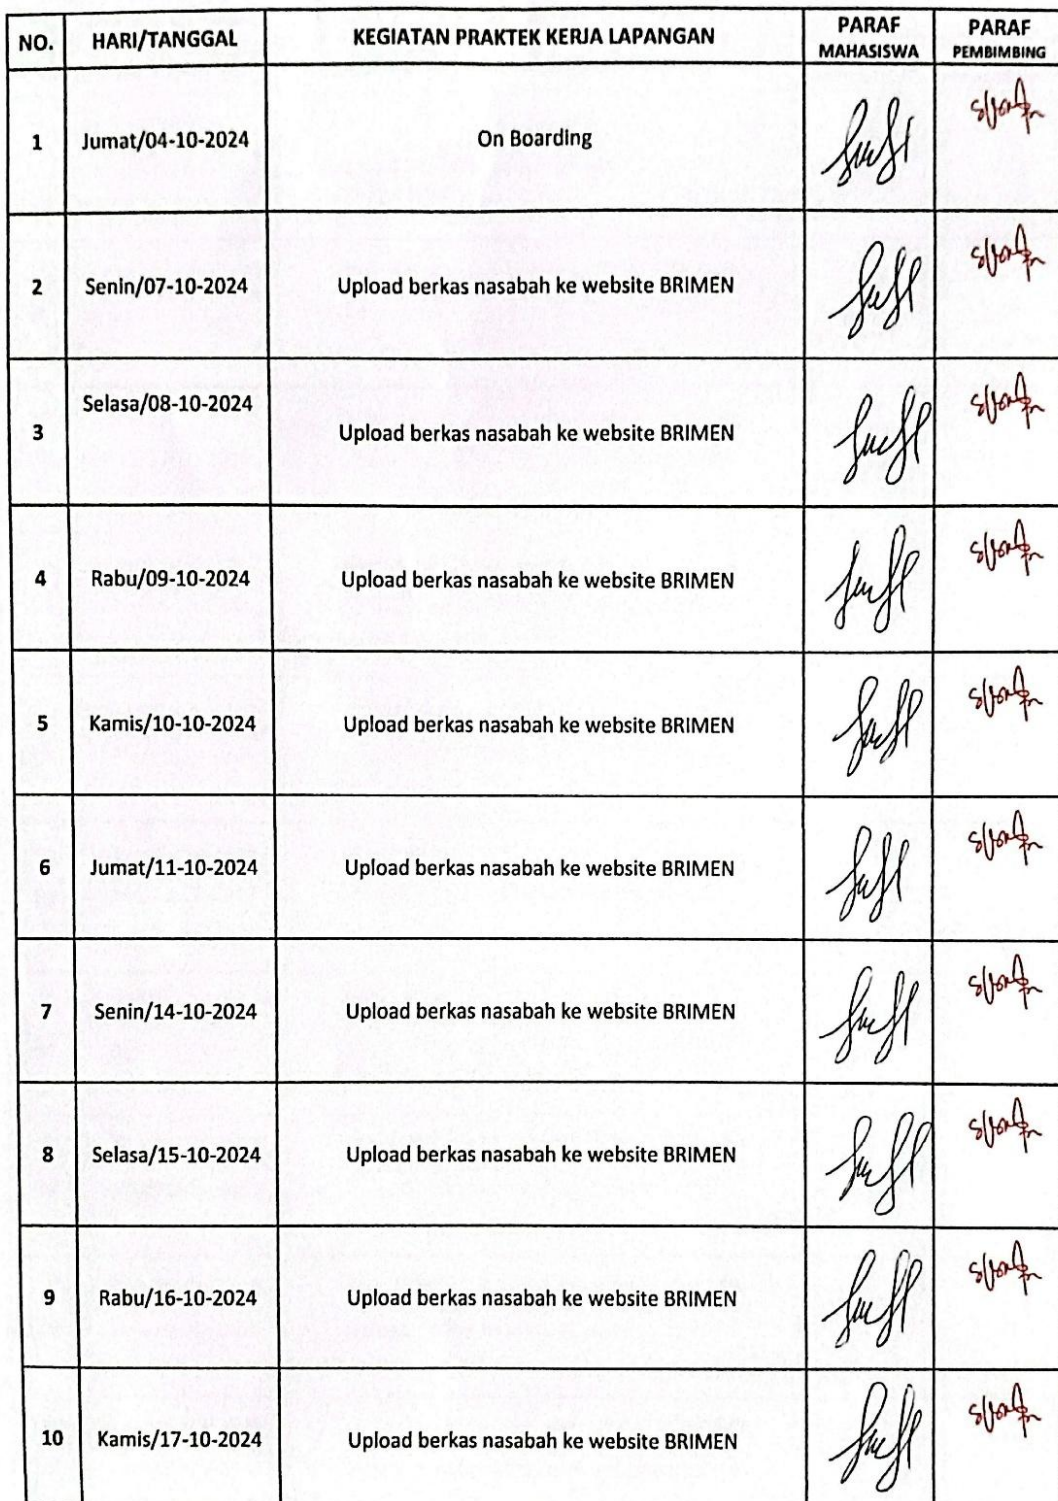 NO. HARI/TANGGAL KEGIATAN PRAKTEK KERJA LAPANGAN PARAF MAHASISWA PARAF PEMBIMBING
1 Jumat/04-10-2024 On Boarding
2 Senin/07-10-2024 Upload berkas nasabah ke website BRIMEN
3 Selasa/08-10-2024 Upload berkas nasabah ke website BRIMEN
4 Rabu/09-10-2024 Upload berkas nasabah ke website BRIMEN
5 Kamis/10-10-2024 Upload berkas nasabah ke website BRIMEN
6 Jumat/11-10-2024 Upload berkas nasabah ke website BRIMEN
7 Senin/14-10-2024 Upload berkas nasabah ke website BRIMEN
8 Selasa/15-10-2024 Upload berkas nasabah ke website BRIMEN
9 Rabu/16-10-2024 Upload berkas nasabah ke website BRIMEN
10 Kamis/17-10-2024 Upload berkas nasabah ke website BRIMEN